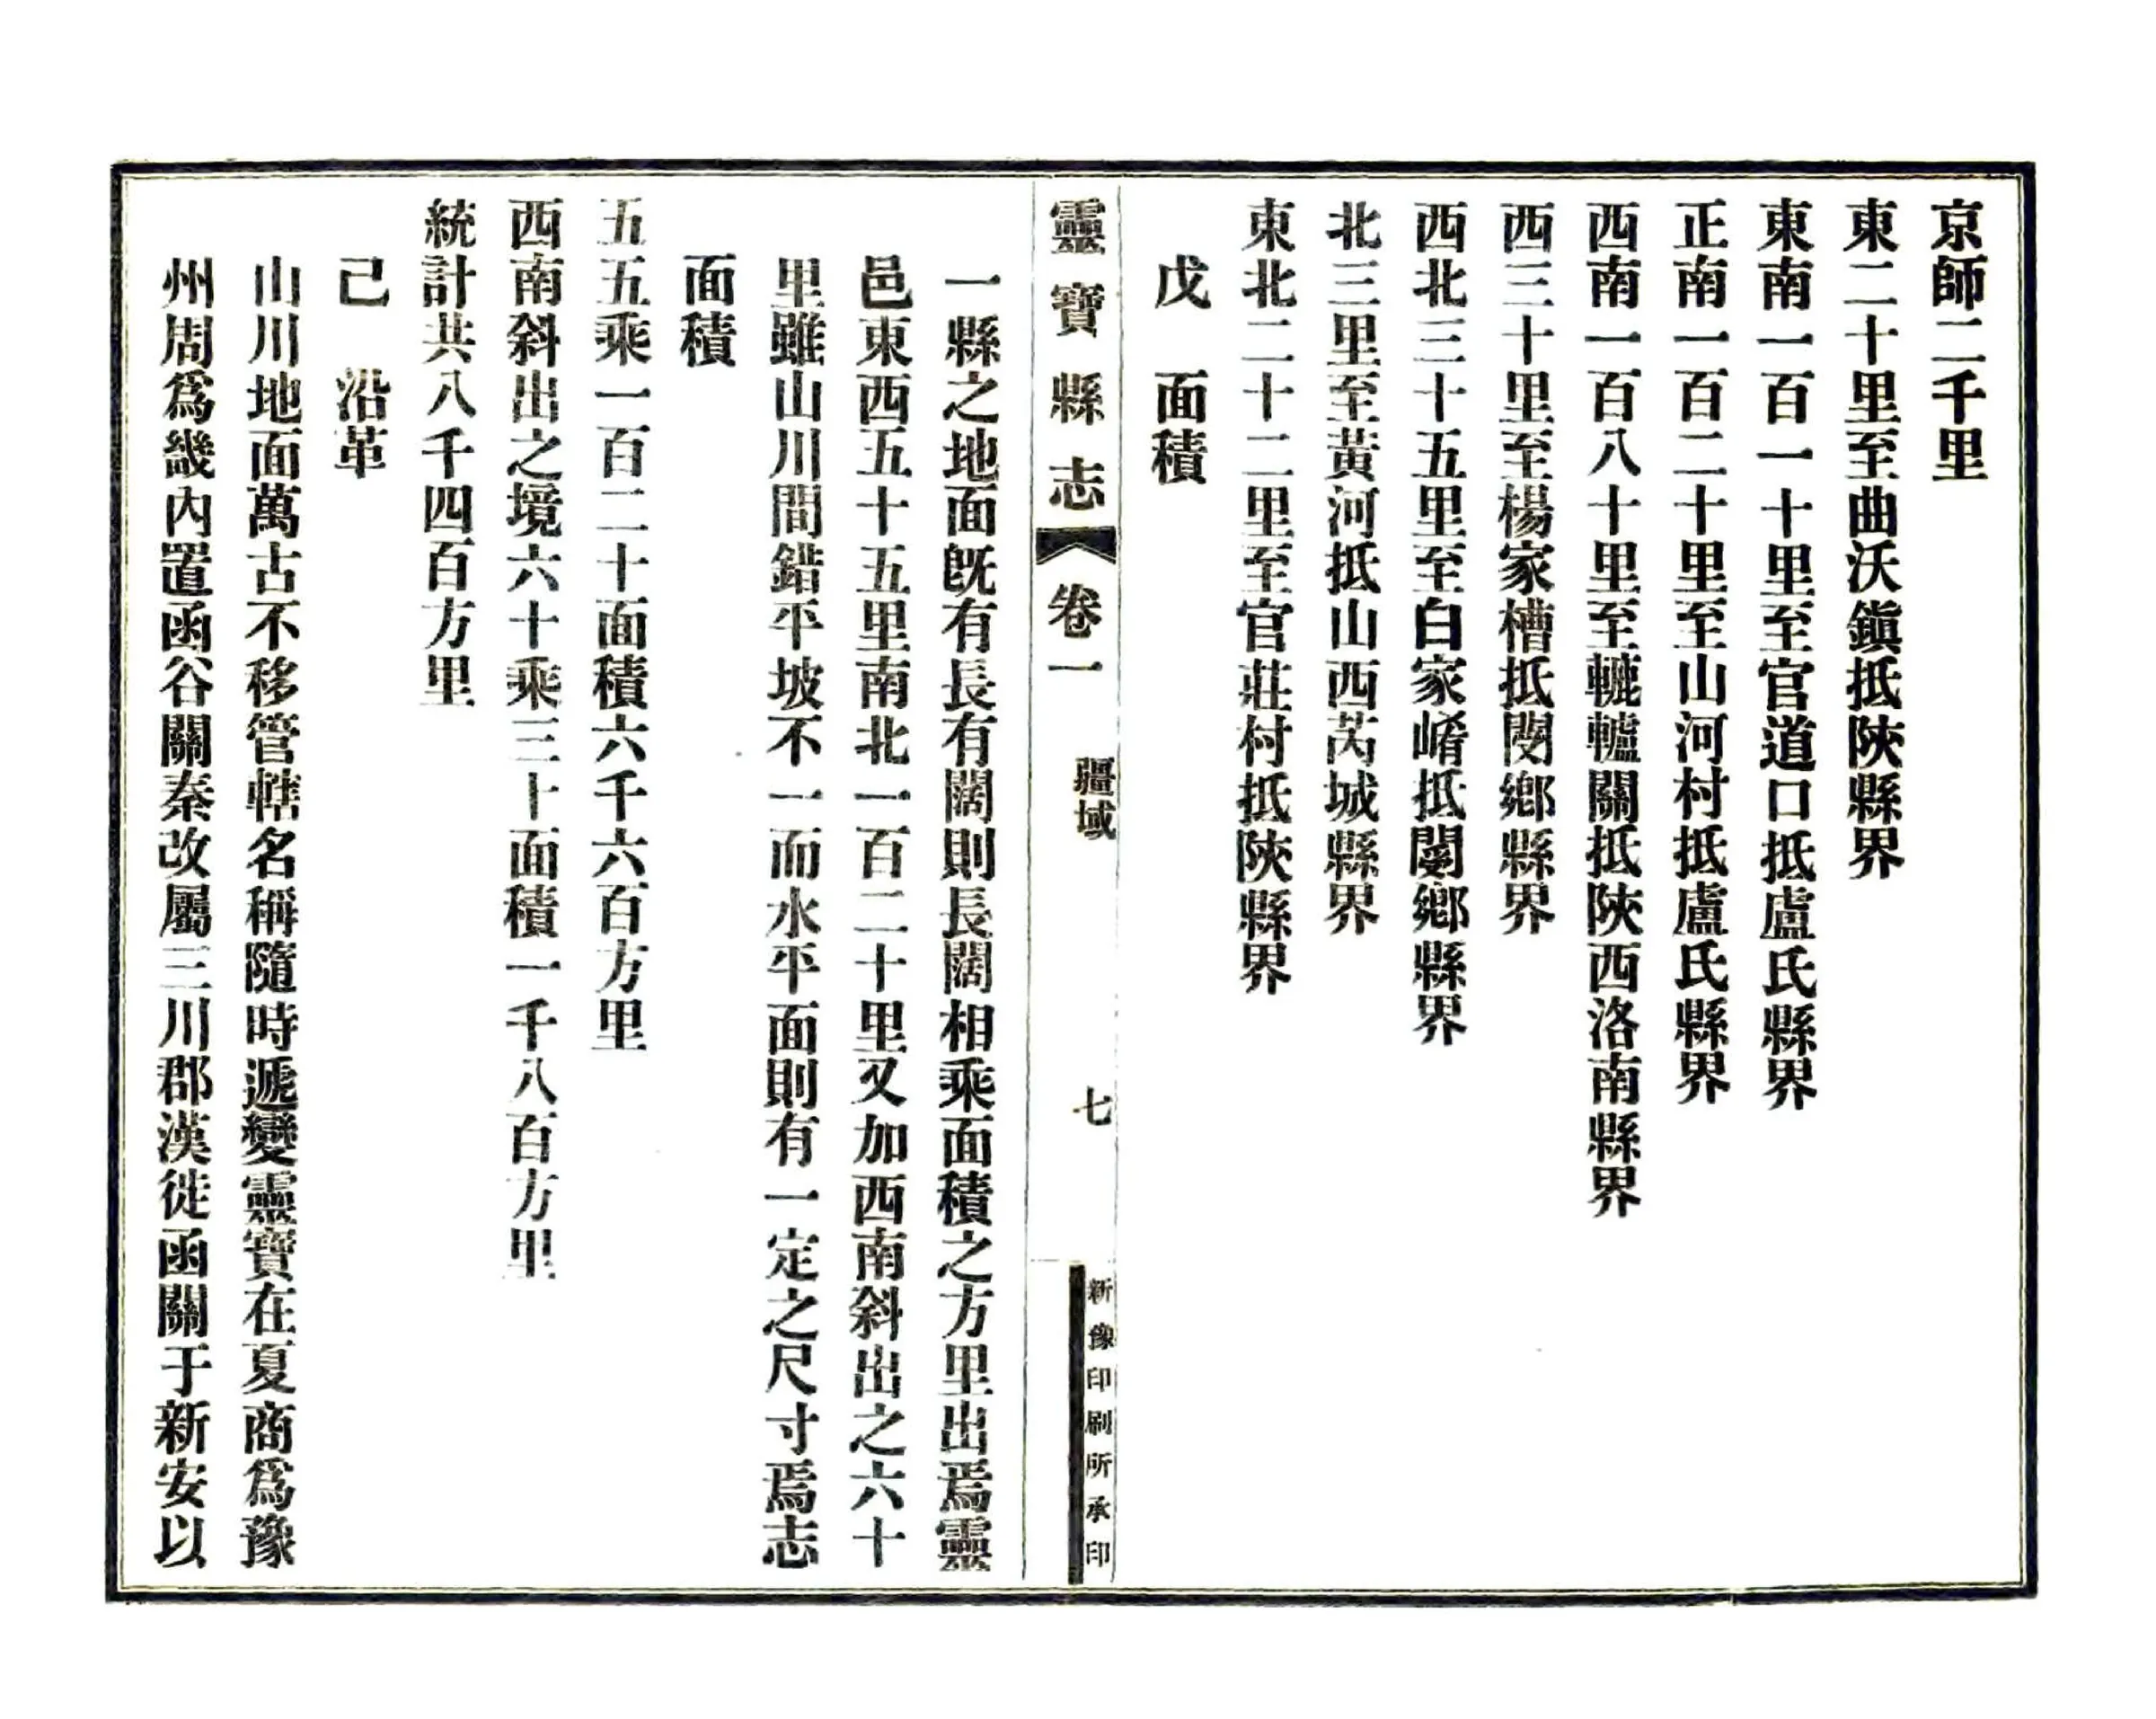 京師二千里
東二十里至曲沃鎭抵陜縣界
東南一百一十里至官道口抵盧氏縣界
正南一百二十里至山河村抵盧氏縣界
西南一百八十里至轆轤關抵陜西洛南縣界
西三十里至楊家槽抵閿鄉縣界
西北三十五里至白家崤抵閿鄉縣界
北三里至黃河抵山西芮城縣界
東北二十二里至官莊村抵陜縣界
戊　面積
靈寶縣志　卷一　疆域　七　新豫印刷所承印
一縣之地面旣有長有闊則長闊相乘面積之方里出焉靈
邑東西五十五里南北一百二十里又加西南斜出之六十
里雖山川間錯平坡不一而水平面則有一定之尺寸焉志
面積
五五乘一百二十面積六千六百方里
西南斜出之境六十乘三十面積一千八百方里
統計共八千四百方里
己　沿革
山川地面萬古不移管轄名稱隨時遞變靈寶在夏商爲豫
州周爲畿內置函谷關秦改屬三川郡漢徙函關于新安以